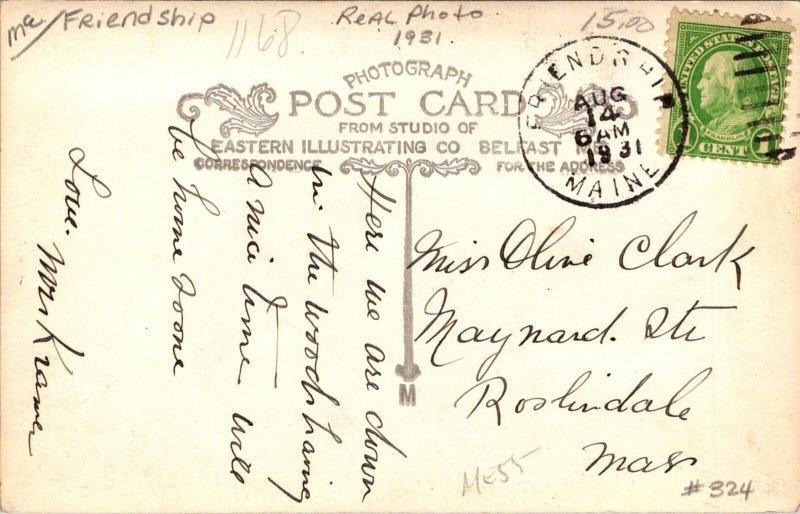 Me/Friendship
1168
Real Photo
1931.
15.00
PHOTOGRAPH
POST CARD
FROM STUDIO OF
EASTERN ILLUSTRATING CO BELFAST ME.
CORRESPONDENCE
FOR THE ADDRESS
FRIENDSHIP
AUG
14
6 AM
1931
MAINE
UNITED STATES POSTAGE
FRANKLIN
1 CENT 1
Here we are down
in the woods having
a nice time will
be home soone
Love. Mrs Kramer
Miss Olive Clark
Maynard. Str
Roslindale
Mass
M
ME55
#324